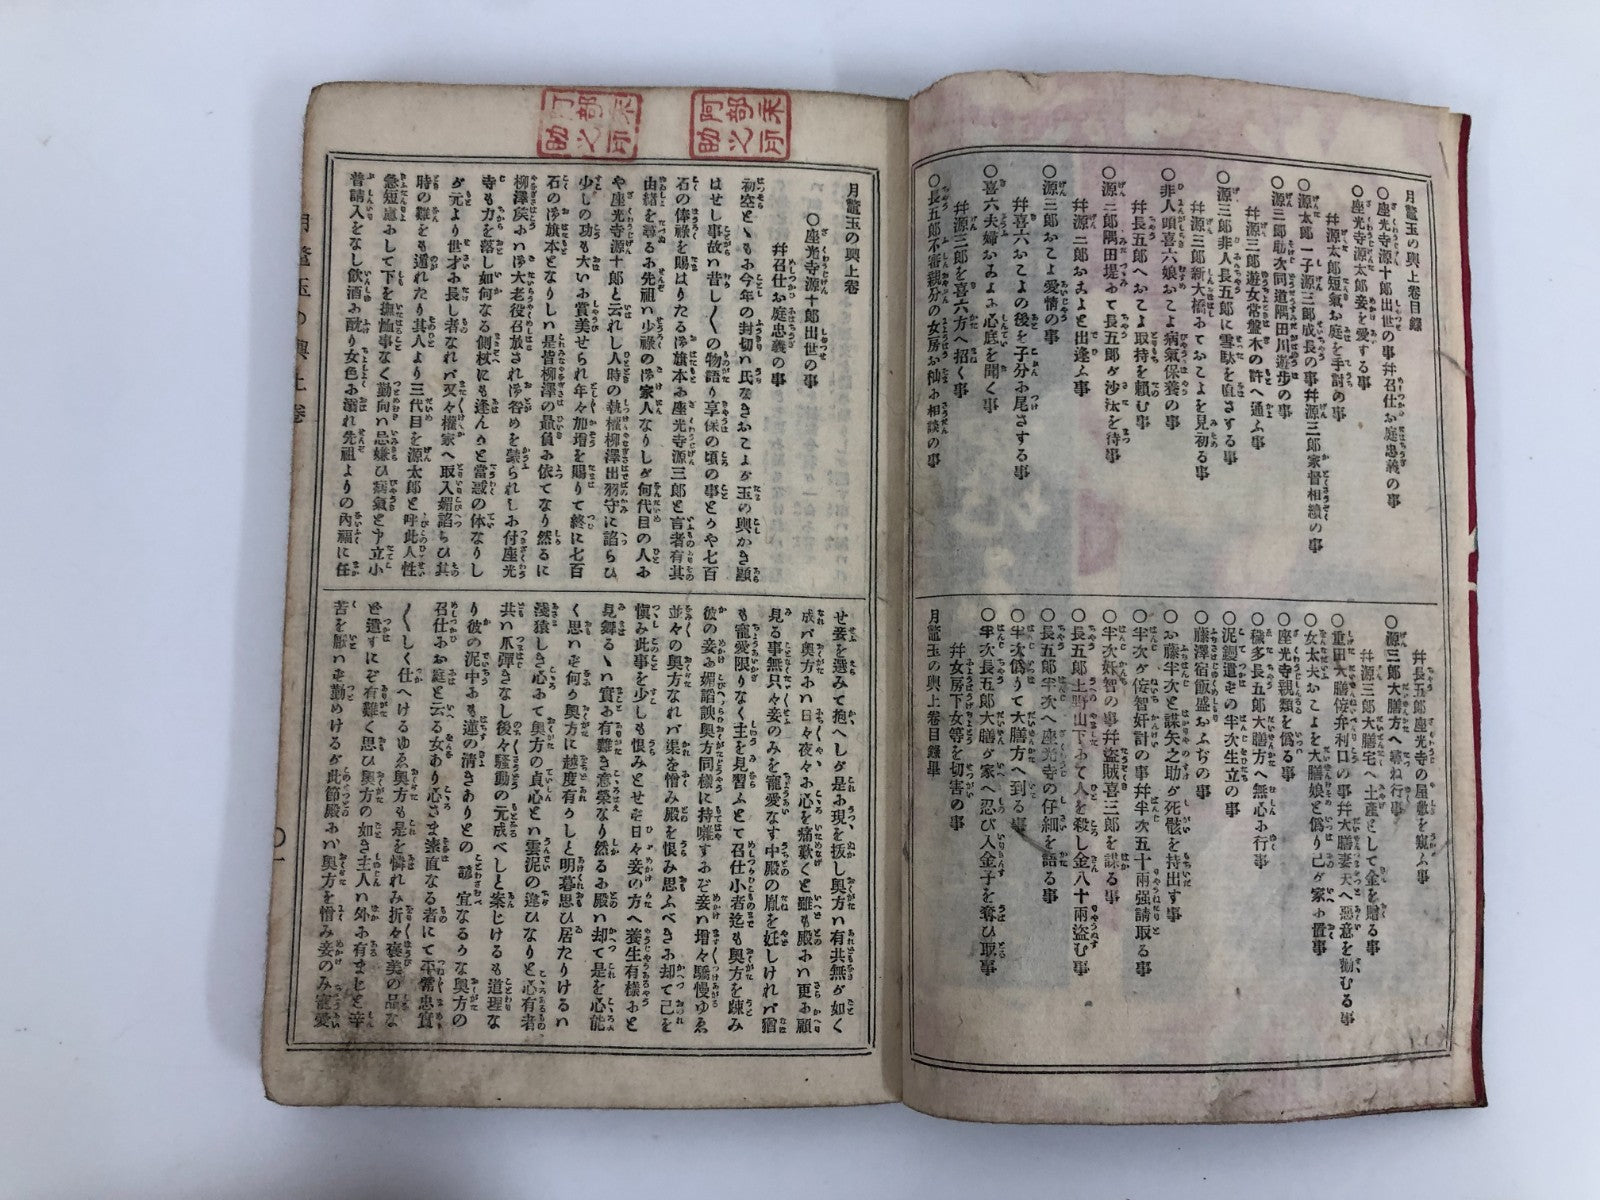 月鼈玉の輿上卷目録
〇座光寺源十郎出世の事幷召仕お庭忠義の事
〇座光寺源太郎妾を愛する事
幷源太郎短氣お庭を手討の事
〇源太郎一子源三郎成長の事幷源三郎家督相續の事
〇源三郎助次同道隅田川遊歩の事
幷源三郎遊女常盤木の許へ通ふ事
〇源三郎非人長五郎に雪駄を直さする事
幷源三郎新大橋ふておこよを見初る事
〇非人頭喜六娘おこよ病氣保養の事
幷長五郎へおこよ取持を頼む事
〇源三郎隅田堤ふて長五郎が沙汰を待事
幷源三郎おおよと出逢ふ事
〇源三郎おこよ愛情の事
幷喜六おこよの後を子分ふ尾さする事
〇喜六夫婦おおよふ心底を聞く事
幷源三郎を喜六方へ招く事
〇長五郎不審親分の女房お杣ふ相談の事
幷長五郎座光寺の屋敷を窺ふ事
〇源三郎大膳方へ尋ね行事
幷源三郎大膳宅へ土產として金を贈る事
〇重田大膳侫弁利口の事幷大膳妻天へ惡意を勸むる事
〇女太夫おこよを大膳娘と僞り己が家ふ置事
〇座光寺親類を僞る事
〇穢多長五郎大膳方へ無心ふ行事
〇泥鰌道㐂の半次生立の事
〇藤澤宿飯盛おふぢの事
〇お藤半次と謀矢之助が死骸を持出す事
〇半次が侫智奸計の事幷半次五十兩强請取る事
〇半次妖智の事幷盜賊喜三郎を謀る事
〇長五郎上野山下ふて人を殺し金八十兩盜む事
〇長五郎半次へ座光寺の仔細を語る事
〇半次僞りて大膳方へ到る事
〇半次長五郎大膳が家へ忍び入金子を奪ひ取事
幷女房下女等を切害の事
月鼈玉の輿上卷目録畢
月鼈玉の輿上卷
〇座光寺源十郎出世の事
幷召仕お庭忠義の事
初空ともふ今年の封切ハ氏なきおこよが玉の輿かき顯
はせし事故ハ昔し〱の物語り享保の頃の事とかや七百
石の俸祿を賜はりたる御旗本ふ座光寺源三郎と言者有其
由緒を尋るふ先祖ハ少祿の御家人なりしが何代目の人ふ
や座光寺源十郎と云れし人時の執權柳澤出羽守に諂らひ
少しの功も大いふ賞美せられ年々加增を賜りて終に七百
石の御旗本となりしハ是皆柳澤の最負ふ依てなり然るに
柳澤矦ふハ御大老役召放され御咎めを蒙られしふ付座光
寺も力を落し如何なる側杖にも逢んかと當惑の体なりし
が元より世才ふ長し者なれバ又々權家へ取入媚諂ちひ其
時の難をも遁れたり其人より三代目を源太郎と呼此人性
急短慮ふして下を撫恤事なく勤向ハ忌嫌ひ病氣と申立小
普請入をなし飮酒ふ耽り女色ふ溺れ先祖よりの內福に任
せ妾を選みて抱へしが是ふ現を拔し奧方ハ有共無が如く
成バ奧方ふハ日々夜々ふ心を痛歎くと雖も殿ふハ更ふ顧
見る事無只々妾のみを寵愛なす中殿の胤を妊しけれバ猶
も寵愛限りなく主を見習ふとて召仕小者迄も奧方を疎み
彼の妾ふ媚謟諛奧方同樣に持囃すふぞ妾ハ增々驕慢ゆゑ
並々の奧方なれバ渠を憎み殿を恨み思ふべきふ却て己を
愼み此事を少しも恨みとせㄜ日々妾の方へ養生有樣ふと
見舞るゝハ實ふ有難き意榮なり然るふ殿ハ却て是を心能
く思ハㄜ何か奧方に越度有かしと明暮思ひ居たりけるハ
淺猿しき心ふて奧方の貞心とハ雲泥の違ひなりと心有者
共ハ爪彈きなし後々騷動の元成べしと案じけるも道理な
り彼の泥中ふも蓮の淸きありとの諺宜なるかな奧方の
召仕ふお庭と云る女あり心さま素直なる者にて平常忠實
〱しく仕へけるゆゑ奧方も是を憐れみ折々褒美の品な
ど遣すにぞ有難く思ひ奧方の如き主人ハ外ふ有まじと辛
苦を厭ハㄜ勤めけるが此節殿ふハ奧方を憎み妾のみ寵愛
月鼈玉の輿上卷
〇一